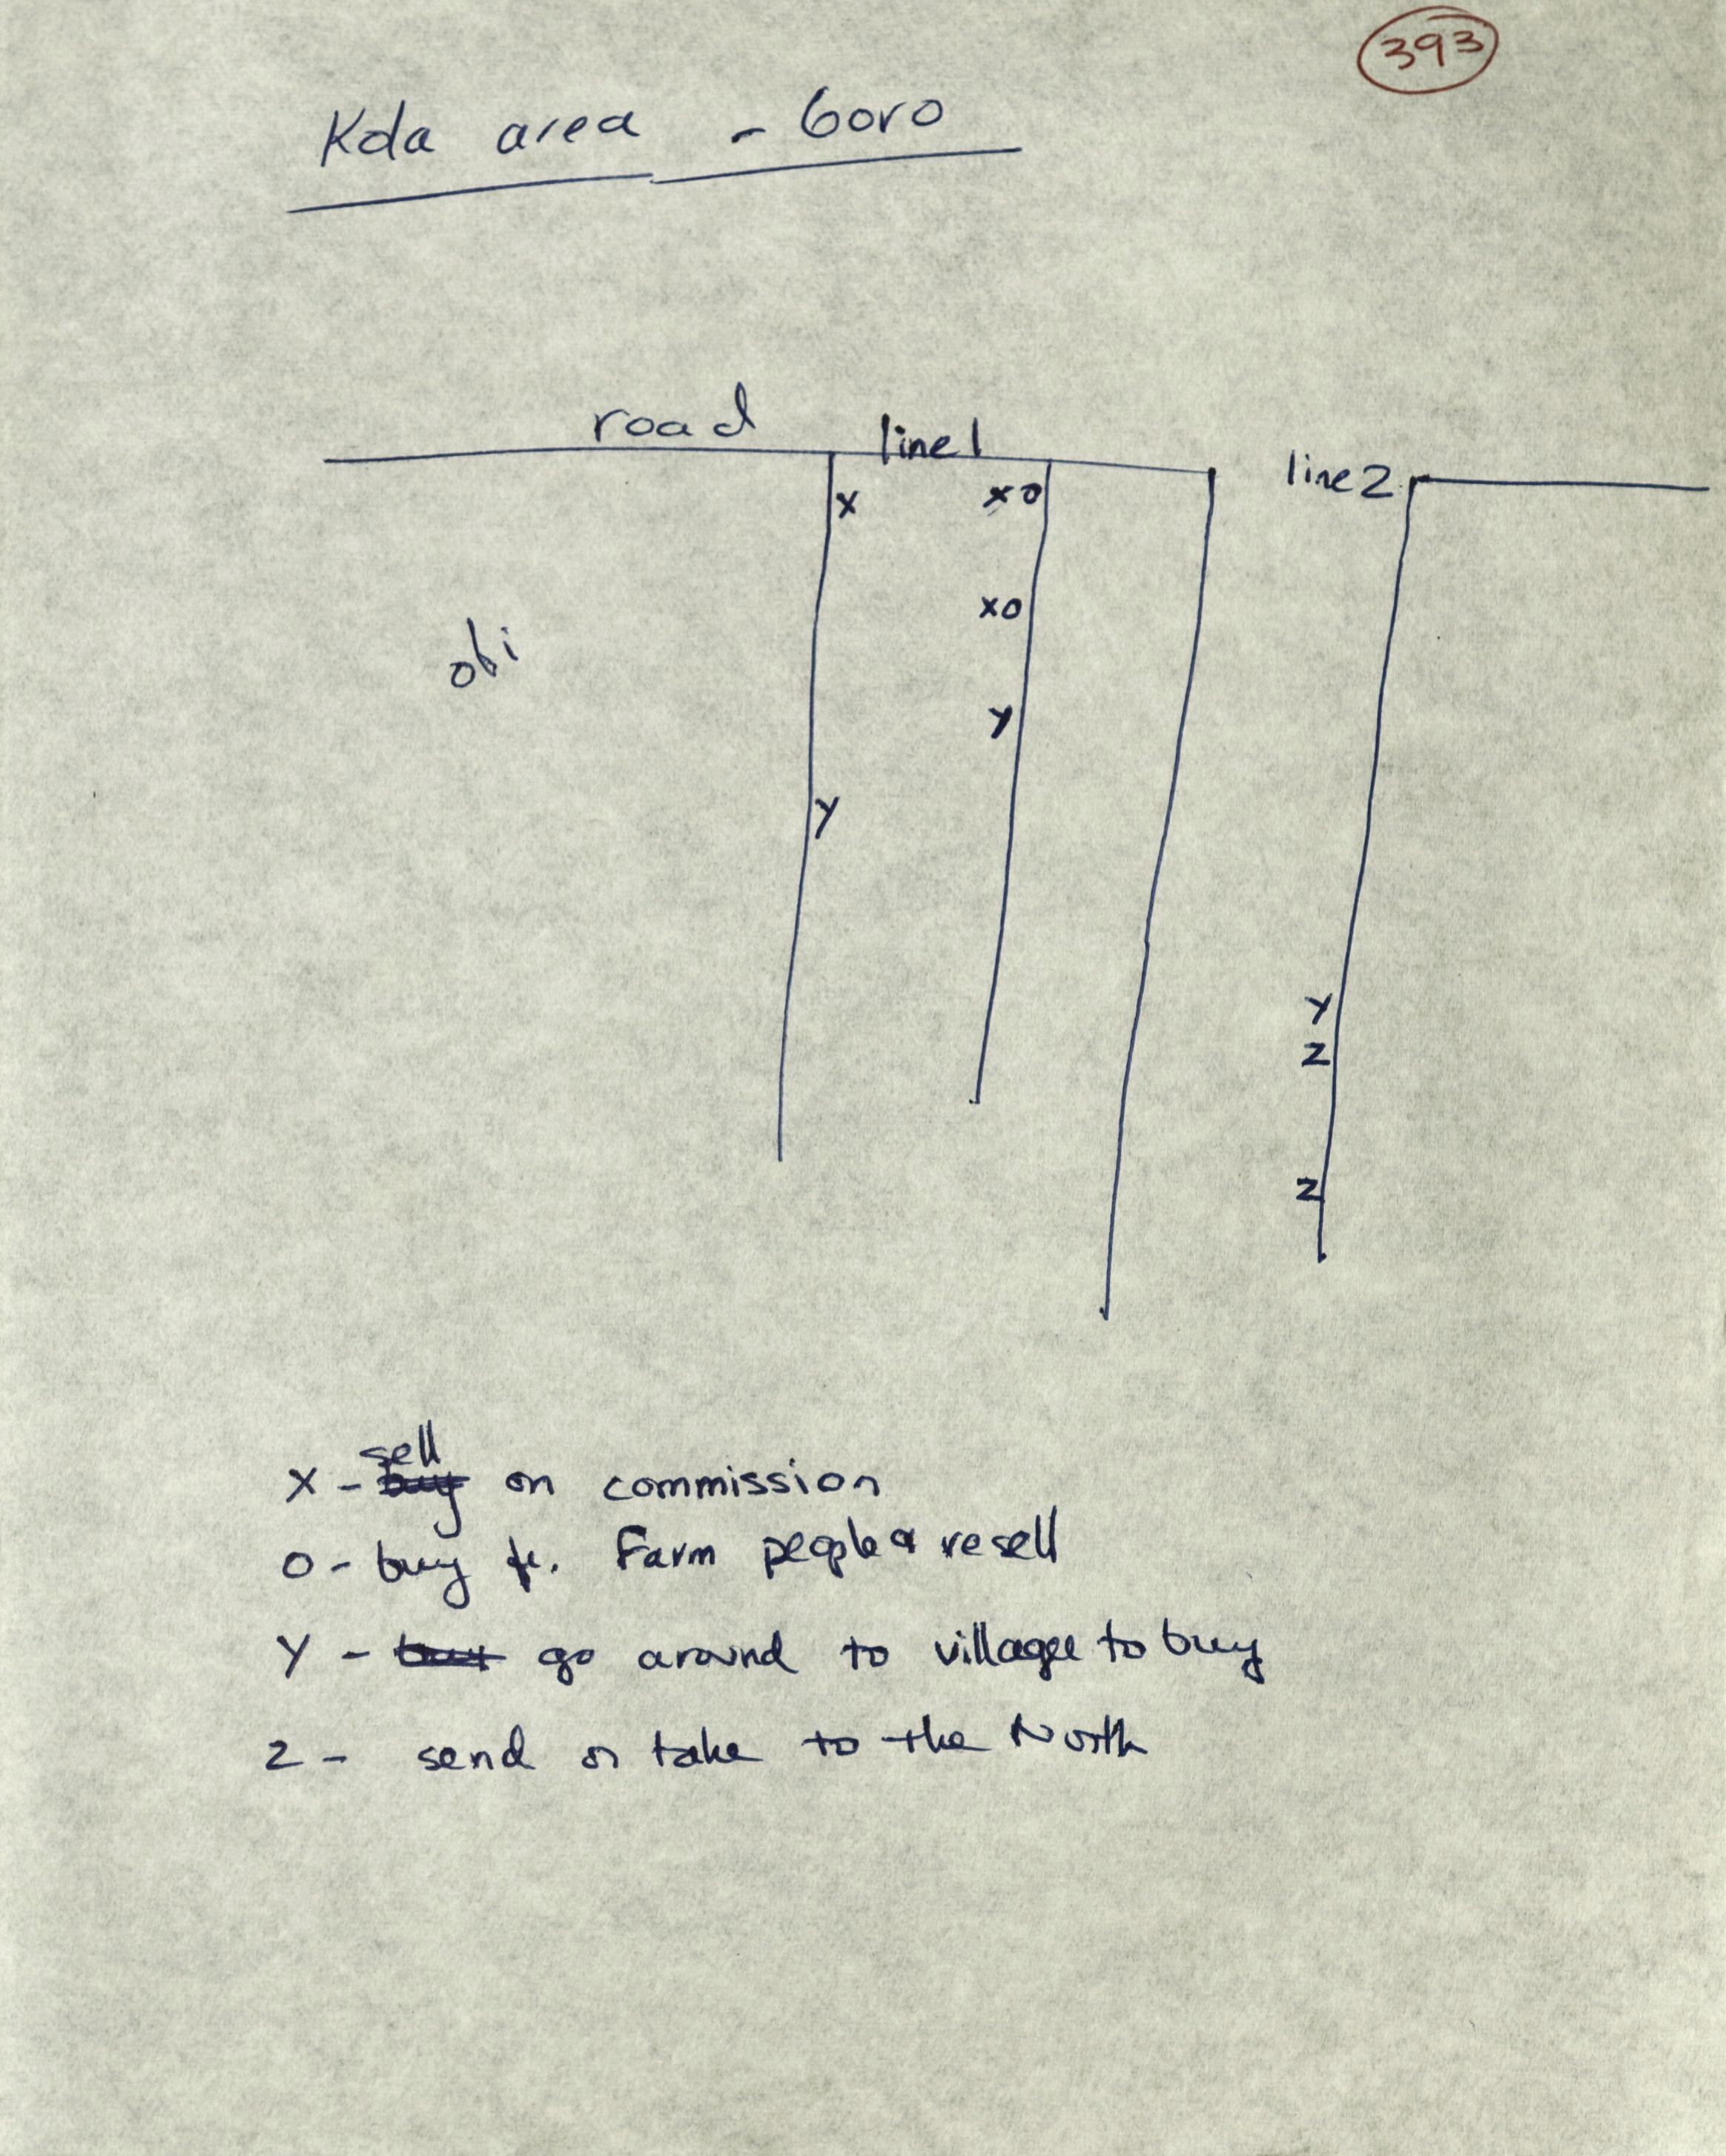 393
Kola area - Goro
road line 1 line 2
x xo
xo
obi
y
y
y
z
z
sell
x - buy on commission
o - buy fr. Farm people & resell
y - go around to village to buy
z - send or take to the North